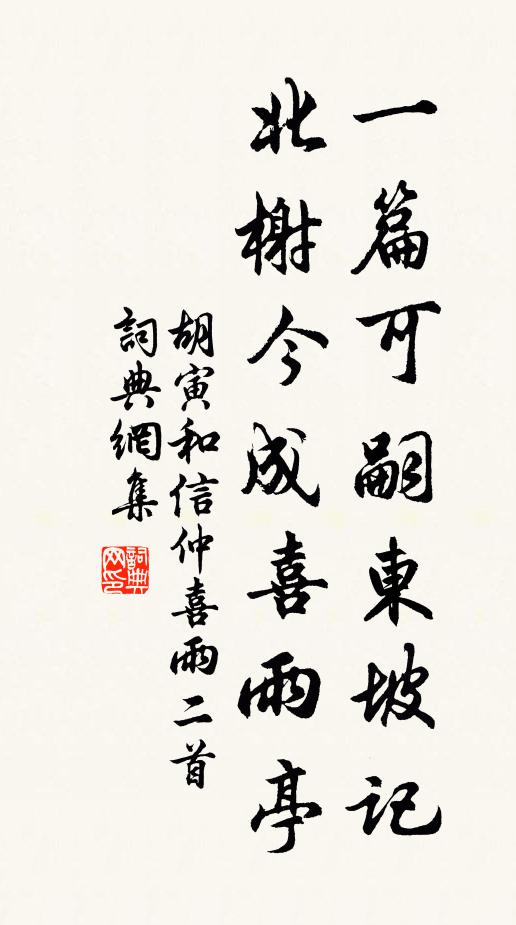 一篇可嗣東坡記
北榭今成喜雨亭
胡寅和信仲喜雨二首
詞典網集
詞典网印